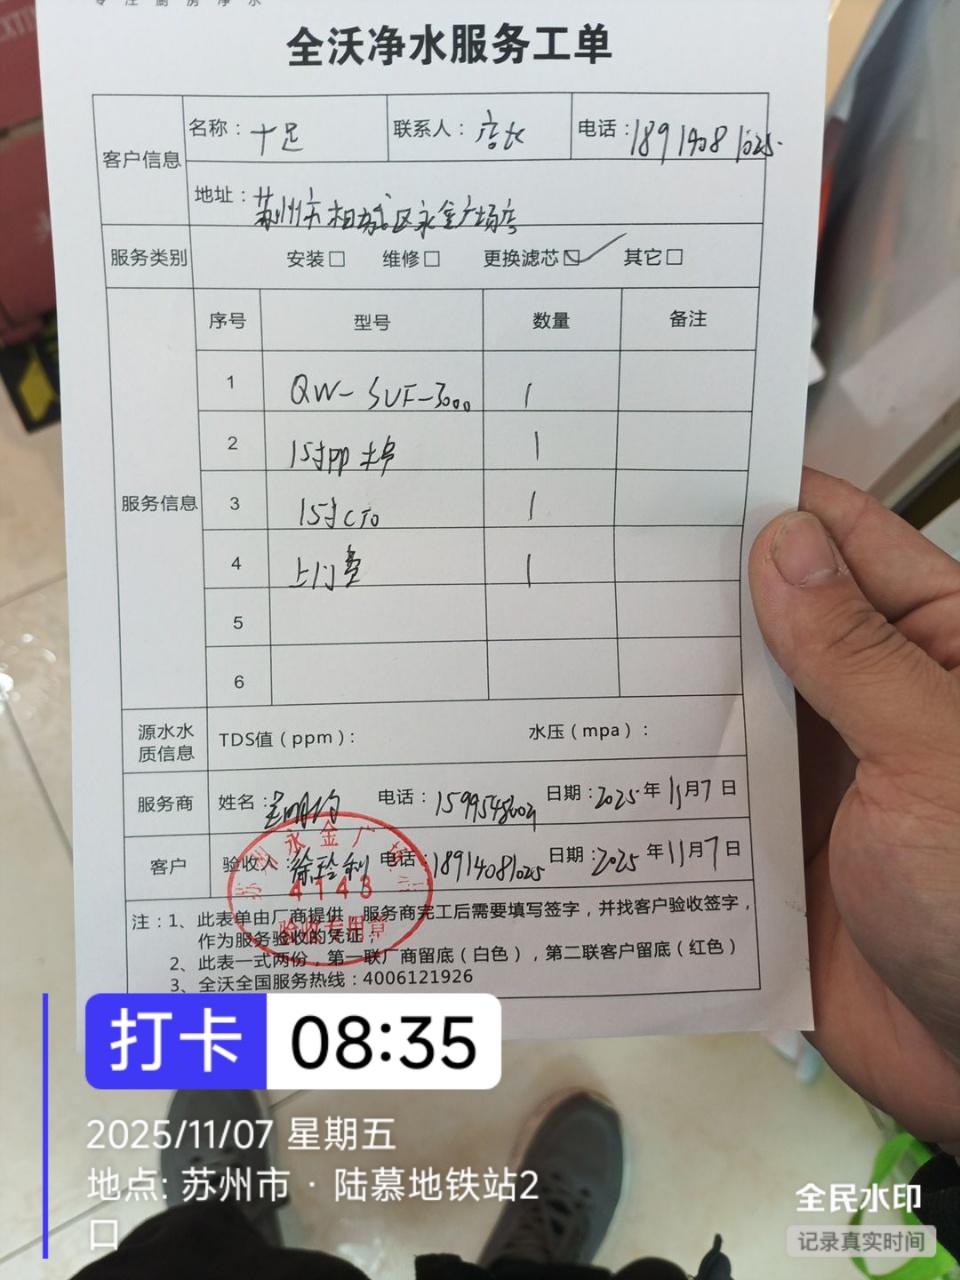 专注厨房净水
全沃净水服务工单
客户信息
名称：十足 联系人：店长 电话：18914081025
地址：苏州市相城区永金广场店
服务类别 安装□ 维修□ 更换滤芯☑ 其它□
服务信息
序号 型号 数量 备注
1 QW-SUF-3000 1
2 15寸PP 1
3 15寸CTO 1
4 上门费 1
5
6
源水水质信息 TDS值（ppm）： 水压（mpa）：
服务商 姓名： 电话： 日期：2025年11月7日
客户 验收人：徐玲利 电话：18914081025 日期：2025年11月7日
苏州永金广场
4143
验收专用章
注：1、此表单由厂商提供，服务商完工后需要填写签字，并找客户验收签字，
作为服务验收的凭证；
2、此表一式两份，第一联厂商留底（白色），第二联客户留底（红色）
3、全沃全国服务热线：4006121926
打卡 08:35
2025/11/07 星期五
地点: 苏州市 · 陆慕地铁站2
口
全民水印
记录真实时间